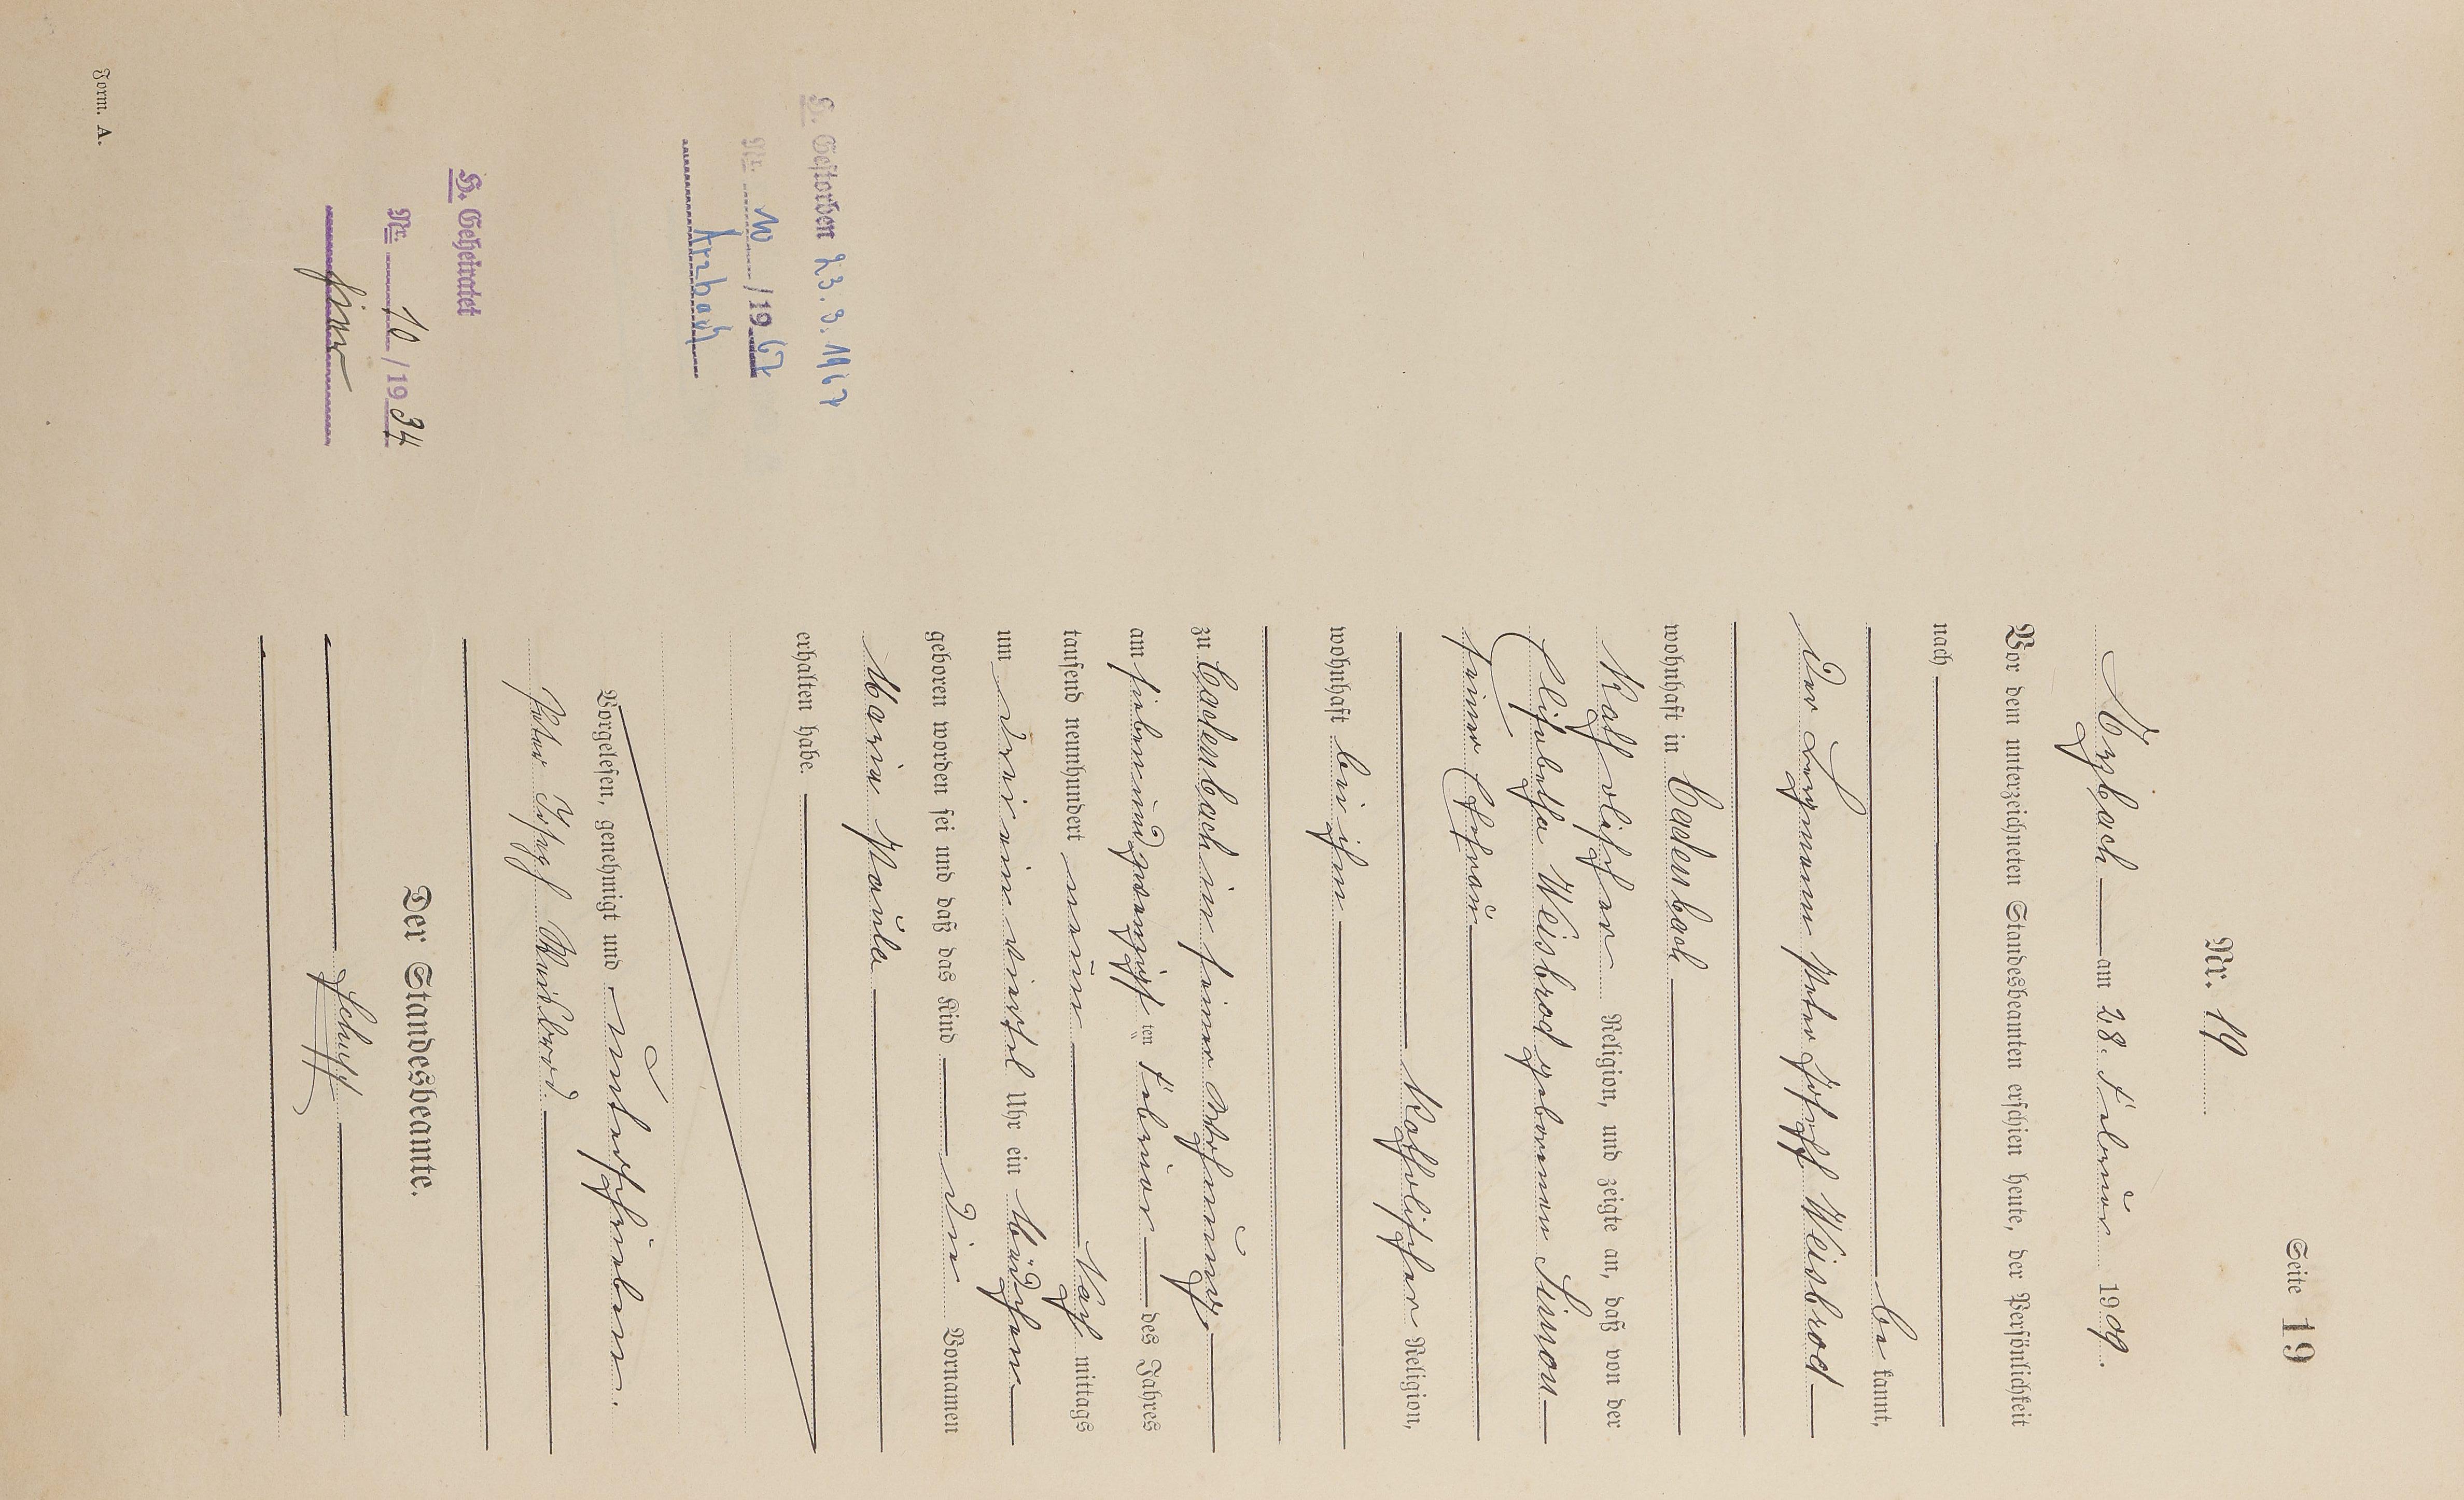 Seite 19
Nr. 19
Arzbach am 28. Februar 1909.
Vor dem unterzeichneten Standesbeamten erschien heute, der Persönlichkeit
nach
be kannt,
der Bergmann Peter Joseph Weisbrod
wohnhaft in Cadenbach
Katholischer Religion, und zeigte an, daß von der
Elisabetha Weisbrod geborenen Simon
seiner Ehefrau
Katholischer Religion,
wohnhaft bei ihm
zu Cadenbach in seiner Wohnung,
am siebenundzwanzigsten Februar des Jahres
tausend neunhundert neun Nach mittags
um drei ein viertel Uhr ein Mädchen
geboren worden sei und daß das Kind die Vornamen
Maria Paula
erhalten habe.
Vorgelesen, genehmigt und unterschrieben.
Peter Josef Weisbrod
Der Standesbeamte.
H. Gestorben 23.9.1967
Nr. 10/1967
Arzbach
H. Geheiratet
Nr. 10/1934
hier
Form. A.